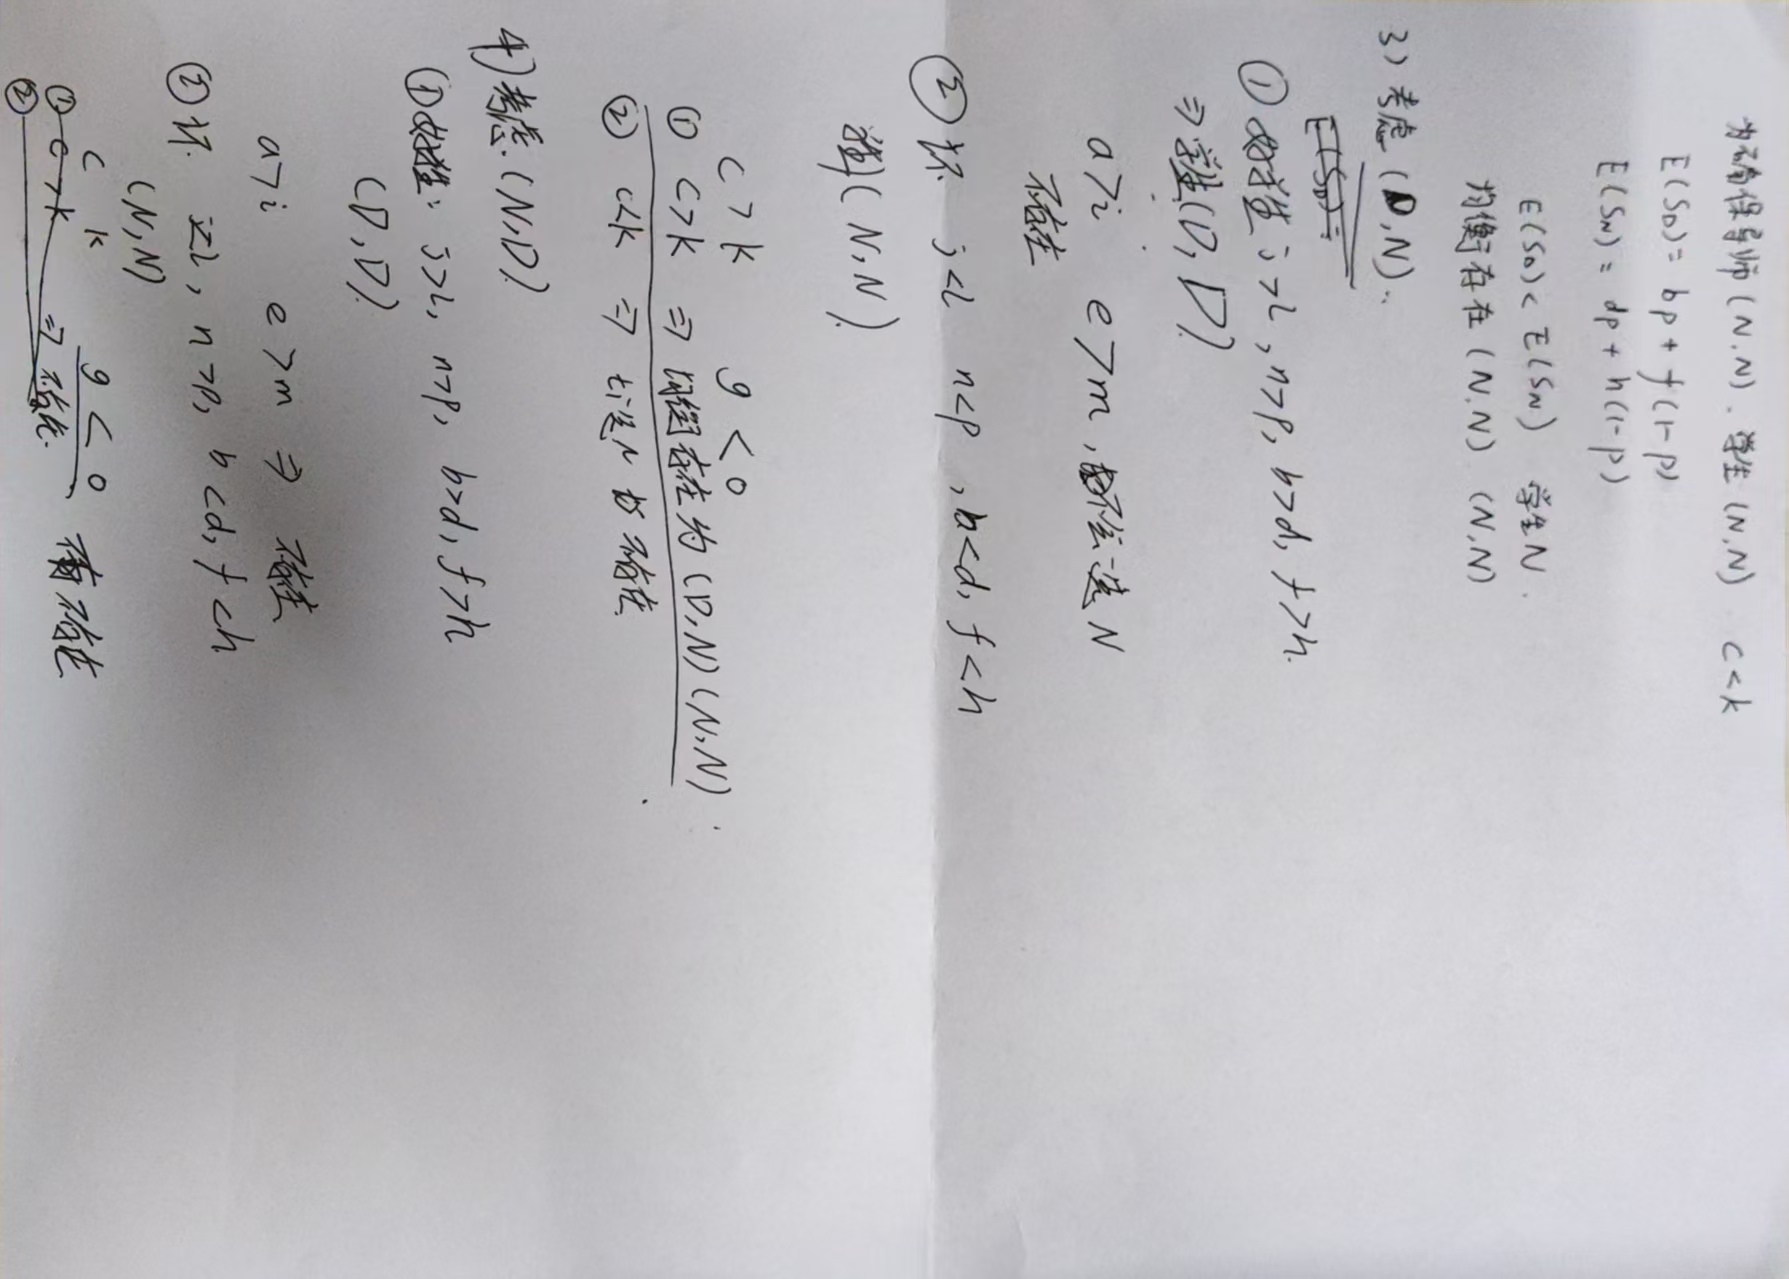 为确保导师(N,N). 学生(N,N) c<k
E(S_D)= bp + f(1-p)
E(S_N)= dp + h(1-p)
E(S_D)< E(S_N) 学生N.
均衡存在(N,N) (N,N)
3) 考虑(D,N).
E(S_D)=
① 好学生 j>l, n>p, b>d, f>h.
⇒学生(D,D)
a>i e>m, 不会选N
不存在
② 坏 j<l n<p, b<d, f<h
学生(N,N)
c>k g<o
① c>k ⇒ 均衡存在为(D,N)(N,N)
② c<k ⇒ 选N 不存在
4)考虑.(N,D)
①好学生: j>l, n>p, b>d, f>h
(D,D)
a>i e>m ⇒ 不存在
②坏. j<l, n>p, b<d, f<h
(N,N)
c k g<o 不存在
① c>k ⇒ 不存在.
②